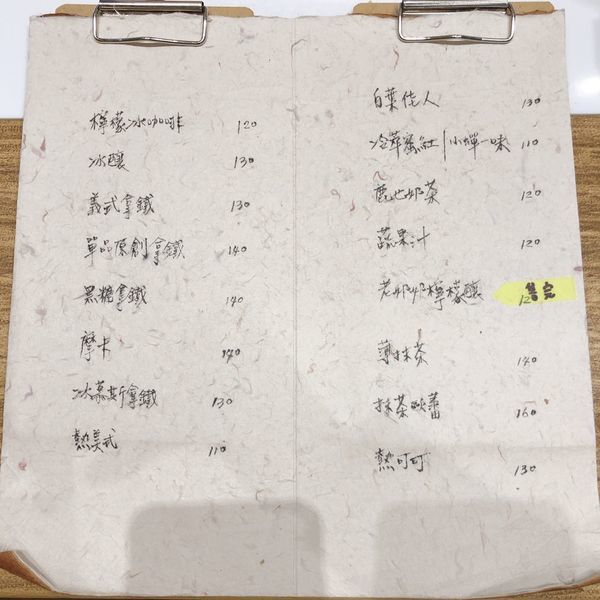 檸檬冰咖啡 120
冰釀 130
義式拿鐵 130
單品原創拿鐵 140
黑糖拿鐵 140
摩卡 140
冰慕斯拿鐵 130
熱美式 110
白葉佳人 130
冷萃蜜紅/小蟬一味 110
鹿比奶茶 120
蔬果汁 120
老奶奶檸檬釀 售完
薄抹茶 140
抹茶歐蕾 160
熱可可 130